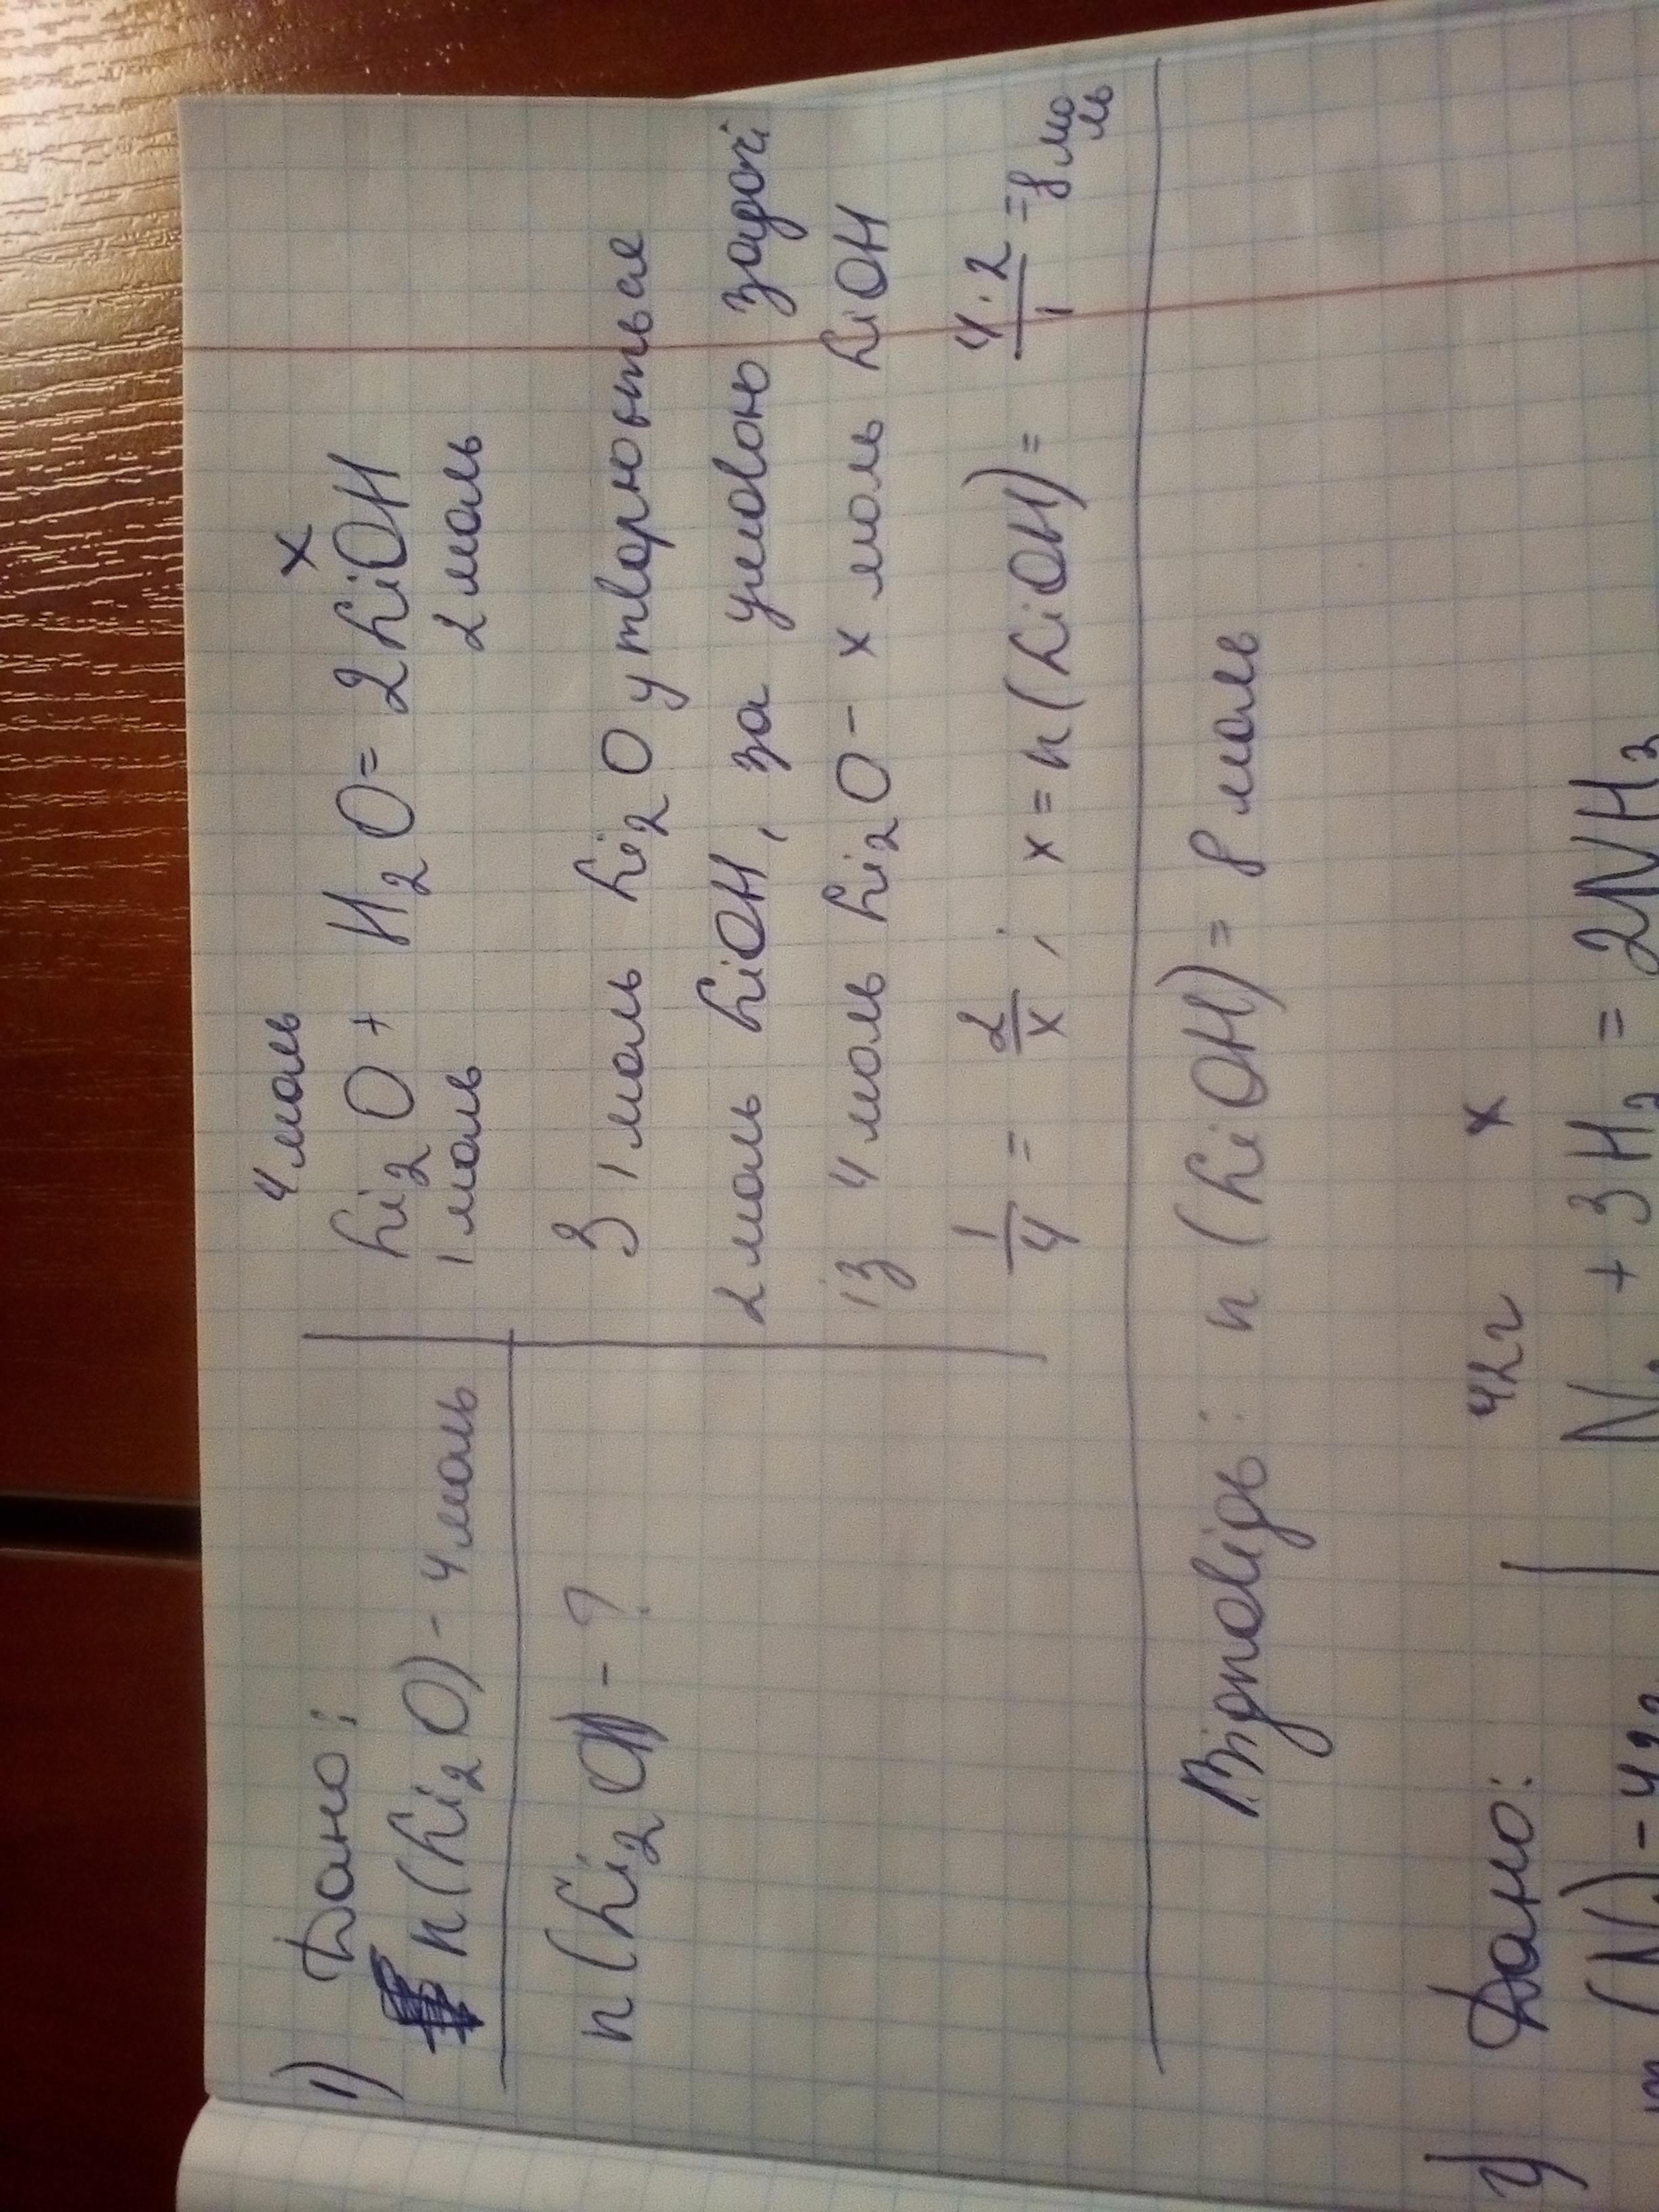 1) Дано:
n(Li₂O) - 4 моль
n(Li₂O) - ?
4 моль x
Li₂O + H₂O = 2LiOH
1 моль 2 моль
З 1 моль Li₂O утворюються
2 моль LiOH, за умовою задачі
із 4 моль Li₂O - x моль LiOH
1/4 = 2/x ; x = n(LiOH) = 4·2/1 = 8 моль
Відповідь: n(LiOH) = 8 моль
Дано:
42г x
+ 3H₂ = 2NH₃